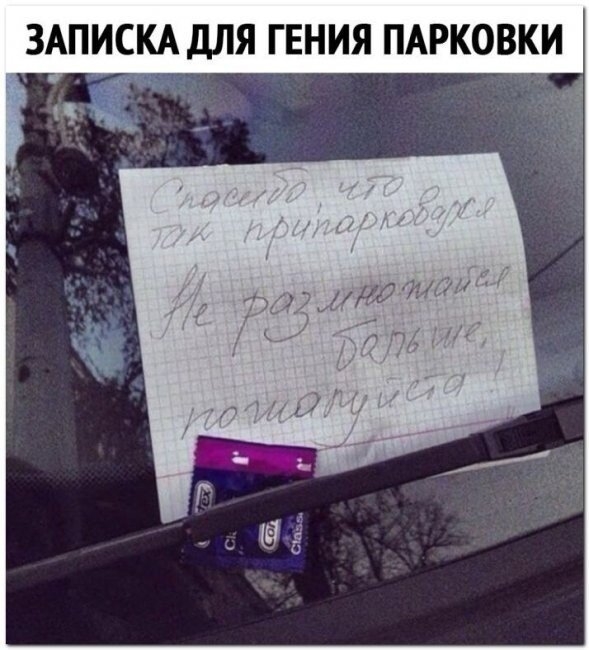 ЗАПИСКА ДЛЯ ГЕНИЯ ПАРКОВКИ
Спасибо, что
так припарковался
Не размножайся
больше,
пожалуйста!
Contex
Classic
Classic